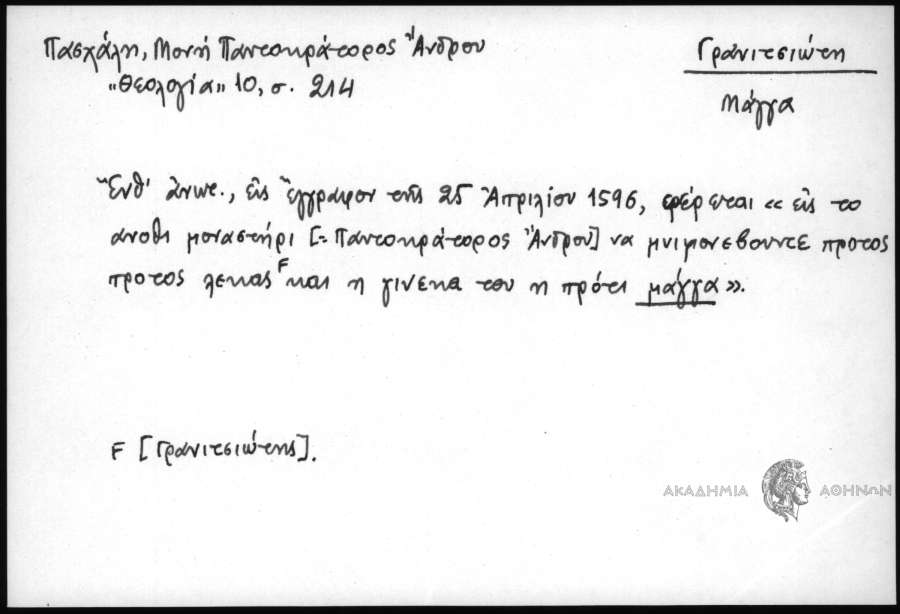 Πασχάλη, Μονή Παντοκράτορος Ἄνδρου
"Θεολογία" 10, σ. 214
Γρανιτσιώτη
Μάγγα
Ἔνθ' ἀνωτ., εἰς ἔγγραφον τῆς 25 Ἀπριλίου 1596, φέρεται « εἰς το
ανοθι μοναστήρι [= Παντοκράτορος Ἄνδρου] να μνιμονεβουντε προτος
προτος λεκας F και η γινεκα του η πρότι μάγγα ».
F [Γρανιτσιώτης].
ΑΚΑΔΗΜΙΑ ΑΘΗΝΩΝ